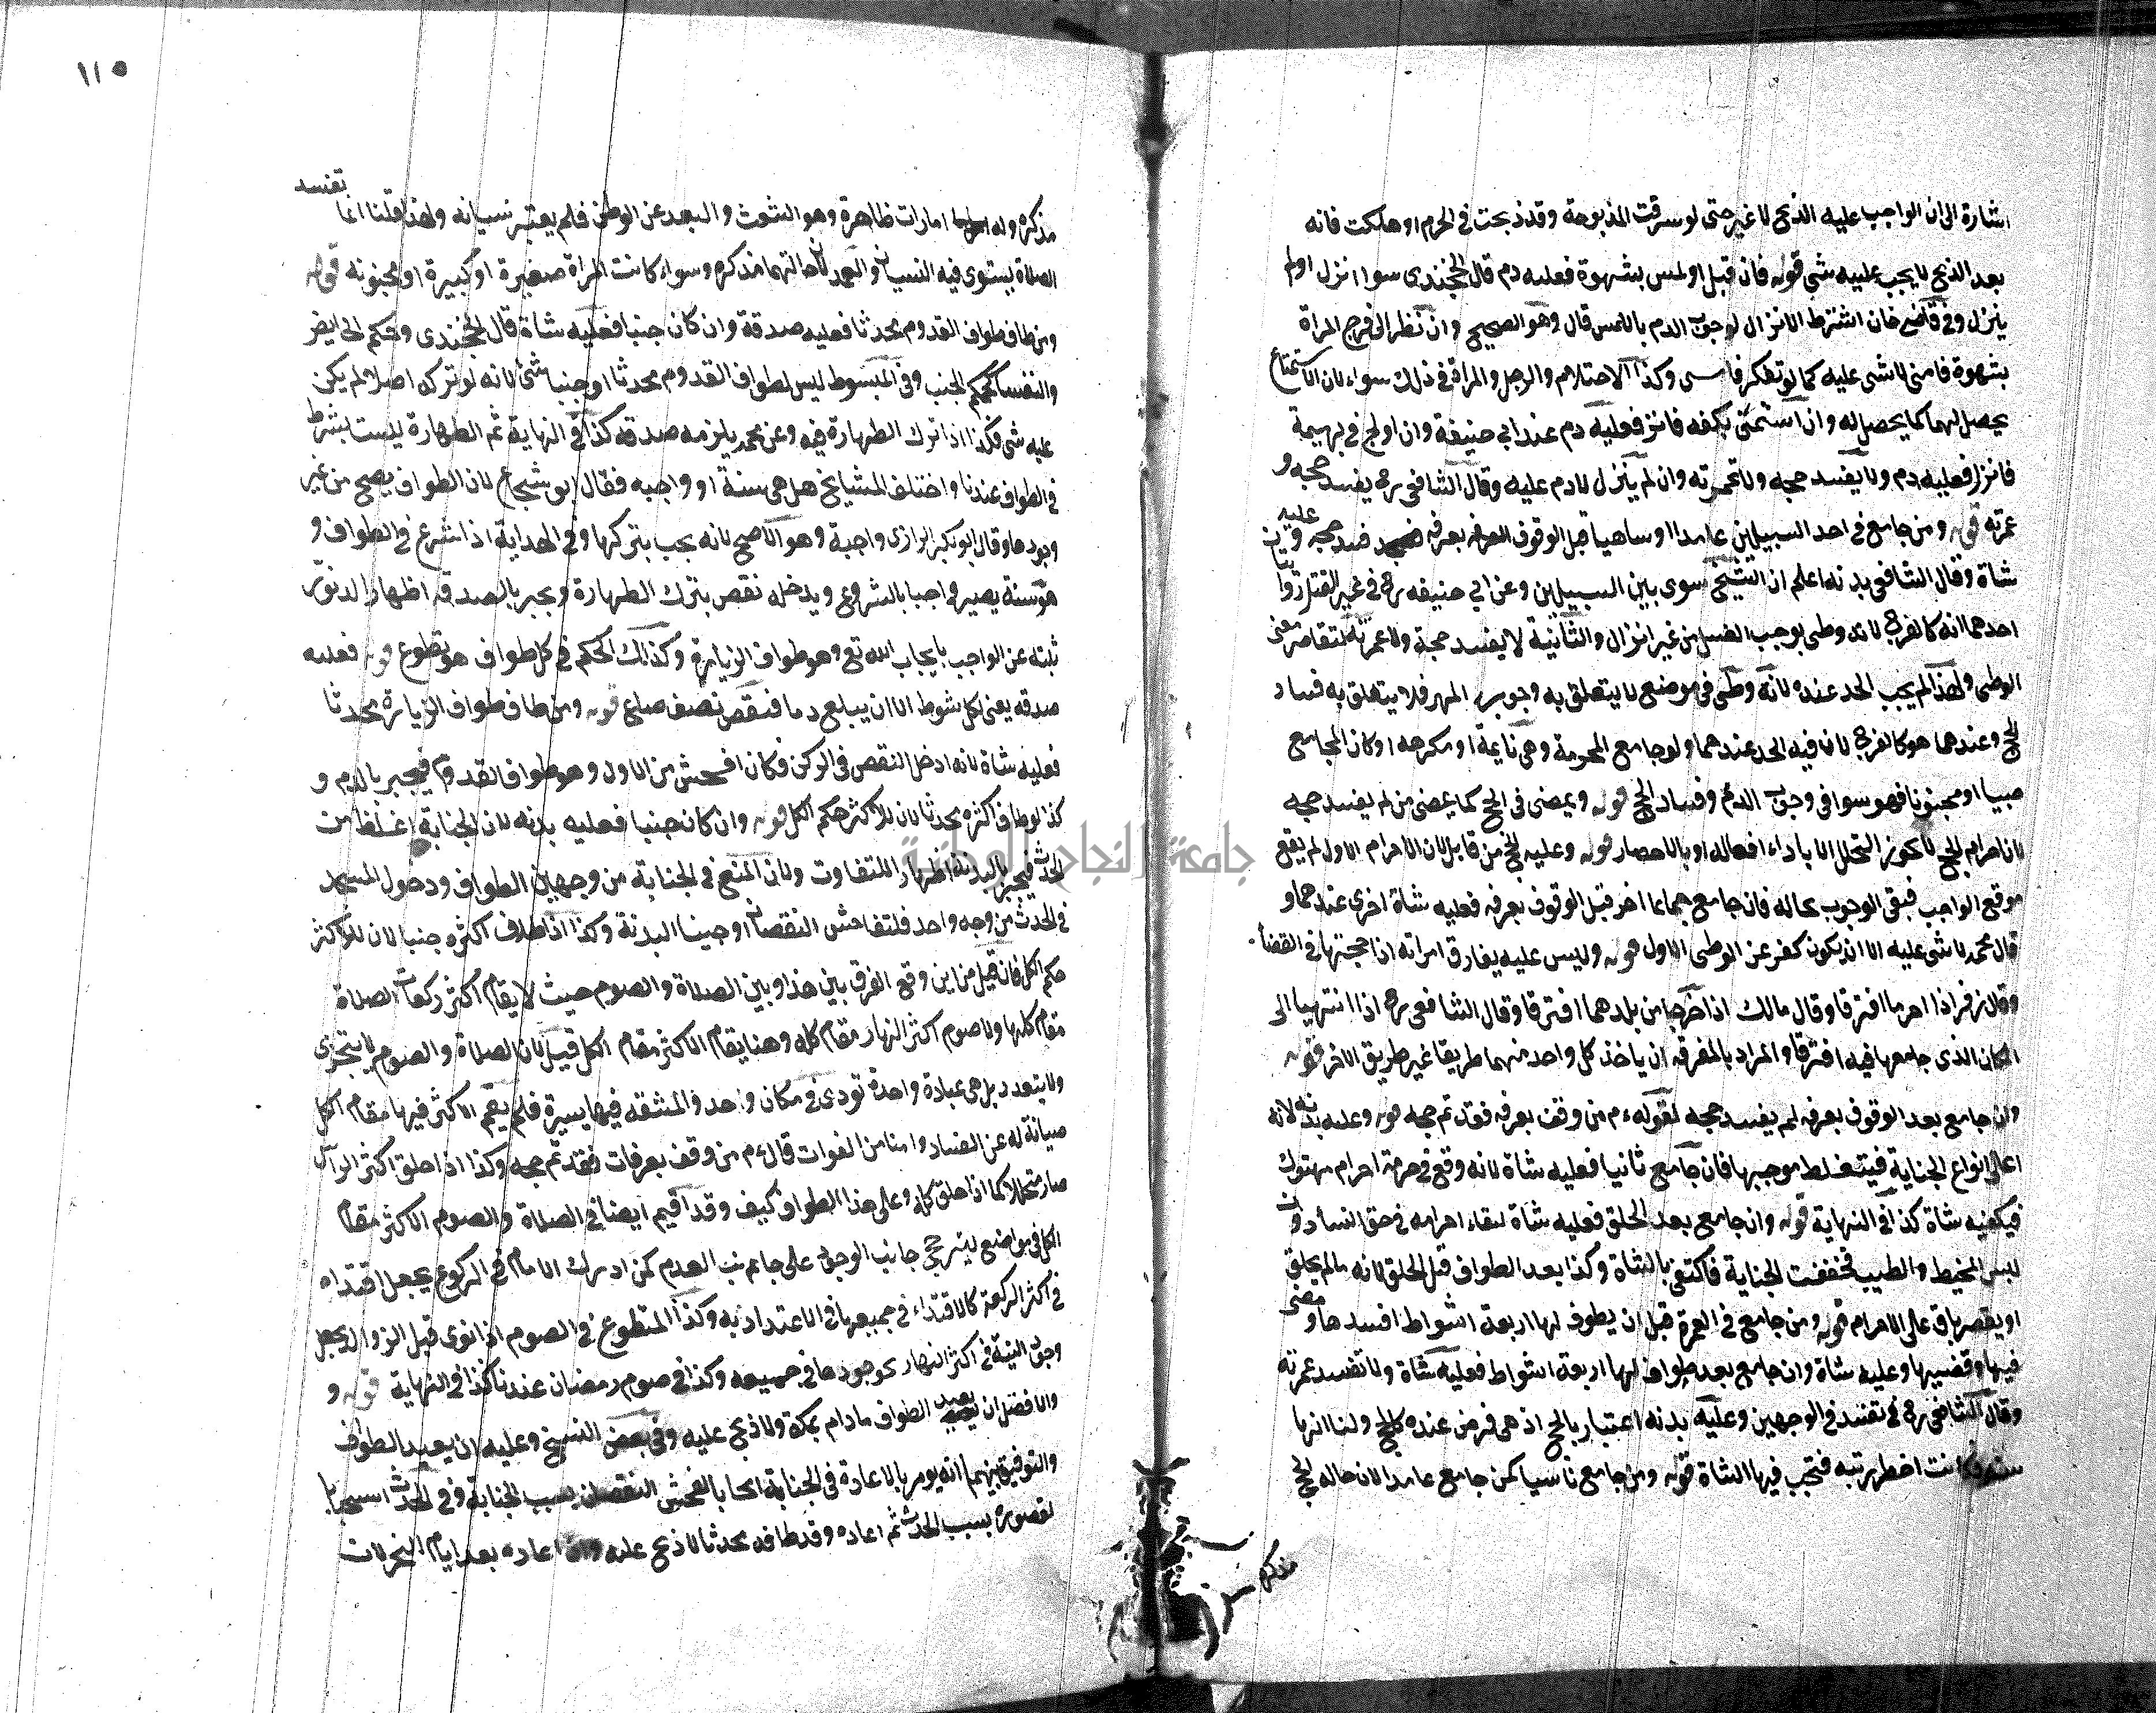 اشارة الى ان الواجب عليه الذبح لا غير حتى لو سرقت المذبوحة وقد ذبحت في الحرم او هلكت فانه
بعد الذبح لا يجب عليه شي قوله فان قبل او لمس بشهوة فعليه دم قال الخجندى سوا انزل اولم
ينزل وفي قاضي خان اشترط الانزال لوجوب الدم باللمس قال وهو الصحيح وان نظر الى فرج امراة
بشهوة فامنى لا شى عليه كما لو تفكر وكذا الاحتلام والرجل والمراة في ذلك سواء لان الاستمتاع
يحصل لهما كما يحصل له وان استمنى بكفه فانزل فعليه دم عند ابي حنيفة وان اولج في بهيمة
فانزل فعليه دم ولا يفسد حجه ولا عمرته وان لم ينزل لا دم عليه وقال الشافعى رح يفسد حجه و
عمرته قوله ومن جامع في احد السبيلين عامدا او ساهيا قبل الوقوف بعرفه فسد حجه وعليه
شاة وقال الشافعى بدنه اعلم ان الشيخ سوى بين السبيلين وعن ابي حنيفه رح في غير القبل روايتان
احدهما انه كالفرج لانه وطى يوجب الغسل من غير انزال والثانية لا يفسد حجة ولا عمرته لتقاصر معنى
الوطى ولهذا لم يجب الحد عنده لانه وطى في موضع لا يتعلق به وجوب المهر فلا يتعلق به فساد
الحج وعندهما هو كالفرج لان فيه الحد عندهما ولو جامع المحرمة وهى نايمة او مكرهه او كان المجامع
صبيا او مجنونا فهو سوا في وجوب الدم وفساد الحج قوله ويمضى في الحج كما يمضى من لم يفسد حجه
لان احرام الحج لا يجوز التحلل الا باداء افعاله او بالاحصار قوله وعليه الحج من قابل لان الاحرام الاول لم يقع
موقع الواجب فبقى الوجوب بحاله فان جامع جماعا اخر قبل الوقوف بعرفه فعليه شاة اخرى عندهما و
قال محمد لا شى عليه الا ان يكون كفر عن الوطى الاول قوله وليس عليه يفارق امراته اذا حج بها في القضا
وقال زفر اذا احرما افترقا وقال مالك اذا خرجا من بلدهما افترقا وقال الشافعى رح اذا انتهيا الى
المكان الذى جامعها فيه افترقا والمراد بالمفرقه ان ياخذ كل واحد منهما طريقا غير طريق الاخر قوله
وان جامع بعد الوقوف بعرفه لم يفسد حجه لقوله ءم من وقف بعرفه فقد تم حجه قوله وعليه بدنه لانه
اعلى انواع الجناية فيتغلظ موجبها فان جامع ثانيا فعليه شاة لانه وقع في حرمة احرام مهتوك
فيكفيه شاة كذا في النهاية قوله وان جامع بعد الحلق فعليه شاة لبقاء احرامه في حق النسا دون
لبس المخيط والطيب فخففت الجناية فاكتفى بالشاة وكذا بعد الطواف قبل الحلق لانه مالم يحلق
او يقصر باق على الاحرام قوله ومن جامع في العمرة قبل ان يطوف لها اربعة اشواط افسدها ومضى
فيها وقضيها وعليه شاة وان جامع بعد طواف لها اربعة اشواط فعليه شاة ولا تفسد عمرته
وقال الشافعى رح تفسد في الوجهين وعليه بدنه اعتبارا بالحج اذ هى فرض عنده كالحج ولنا انها
سنة فكانت احط رتبه فتجب فيها الشاة قوله ومن جامع ناسيا كمن جامع عامدا لان حاله الحج
مذكره
١١٥
مذكره وله امارات ظاهرة وهو الشعث والبعد عن الوطن فلم يعتبر نسيانه ولهذا قلنا انما تفسد
الصلاة يستوى فيه النسيان والعمد لان حالتها مذكره وسواء كانت المراة صغيرة او كبيرة او مجنونه قوله
ومن طاف طواف القدوم محدثا فعليه صدقة وان كان جنبا فعليه شاة قال الخجندى وحكم الحايض
والنفسا كحكم الجنب وفي المبسوط ليس لطواف القدوم محدثا او جنبا شى لانه لو تركه اصلا لم يكن
عليه شى فكذا اذا ترك الطهارة فيه وعن محمد يلزمه صدقة كذا في النهاية ثم الطهارة ليست بشرط
في الطواف عندنا واختلف المشايخ هل هى سنة او واجبه فقال ابو شجاع لان الطواف يصح من غير
وجودها وقال ابو بكر الرازى واجبة وهو الاصح لانه يجب بتركها وفي الهداية اذا شرع في الطواف و
هو سنة يصير واجبا بالشروع ويدخله نقص بترك الطهارة ويجبر بالصدقه اظهارا لدنو
رتبته عن الواجب بايجاب الله تع وهو طواف الزيارة وكذلك الحكم في كل طواف هو تطوع قوله فعليه
صدقه يعنى لكل شوط الا ان يبلغ دما فنقص نصف صاع قوله ومن طاف طواف الزيارة محدثا
فعليه شاة لانه ادخل النقص في الركن فكان افحش من الاول وهو طواف القدوم فيجبر بالدم و
كذا لو طاف اكثره محدثا لان للاكثر حكم الكل قوله وان كان جنبا فعليه بدنه لان الجنابة اغلظ من
الحدث فيجبر بالبدنه اظهارا للتفاوت ولان المنع في الجنابة من وجهين الطواف ودخول المسجد
في الحدث من وجه واحد فلتفاحش النقصان اوجبنا البدنة وكذا اذا طاف اكثره جنبا لان للاكثر
حكم الكل فان قيل من اين وقع الفرق بين هذا وبين الصلاة والصوم حيث لا يقام اكثر ركعات الصلاة
مقام كلها ولا صوم اكثر النهار مقام كله وهنا يقام الاكثر مقام الكل قيل لان الصلاة والصوم لا يتجزى
ولا يتعدد بل هى عبادة واحدة تودى في مكان واحد والمشقه فيها يسيرة فلم يقم الاكثر فيها مقام الكل
صيانة له عن الفساد وامنا من الفوات قال ءم من وقف بعرفات فقد تم حجه وكذا اذا حلق اكثر الراس
صار متحللا كما اذا حلق كله وعلى هذا الطواف كيف وقد اقيم ايضا في الصلاة والصوم الاكثر مقام
الكل في مواضع ليترجح جانب الوجود على جانب العدم كمن ادرك الامام في الركوع يجعل اقتداه
في اكثر الركعة كالاقتداء في جميعها في الاعتداد به وكذا المتطوع في الصوم اذا نوى قبل الزوال يجعل
وجود النية في اكثر النهار كوجودها في جميعه وكذا في صوم رمضان عندنا كذا في النهاية قوله و
والافضل ان يعيد الطواف مادام بمكة ولا ذبح عليه وفي بعض النسخ وعليه ان يعيد الطواف
والتوفيق بينهما انه يومر بالاعادة في الجنابة ايجابا لفحش النقصان بسبب الجنابة وفي الحدث استحبابا
لقصوره بسبب الحدث ثم اعاده وقد طافه محدثا لا ذبح عليه وان اعاده بعد ايام النحر لان
جامعة النجاح الوطنية